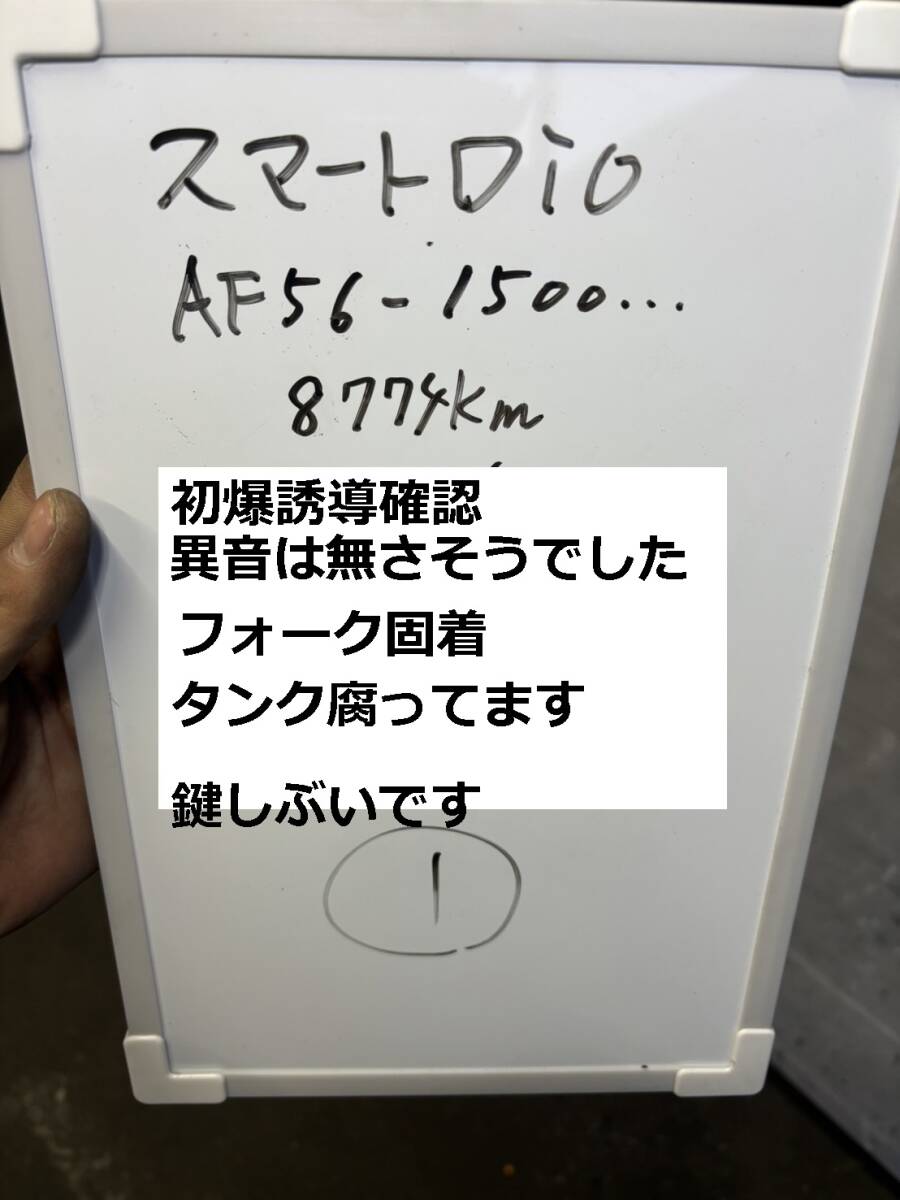 スマートDio
AF56-1500...
8774km
初爆誘導確認
異音は無さそうでした
フォーク固着
タンク腐ってます
鍵しぶいです
1